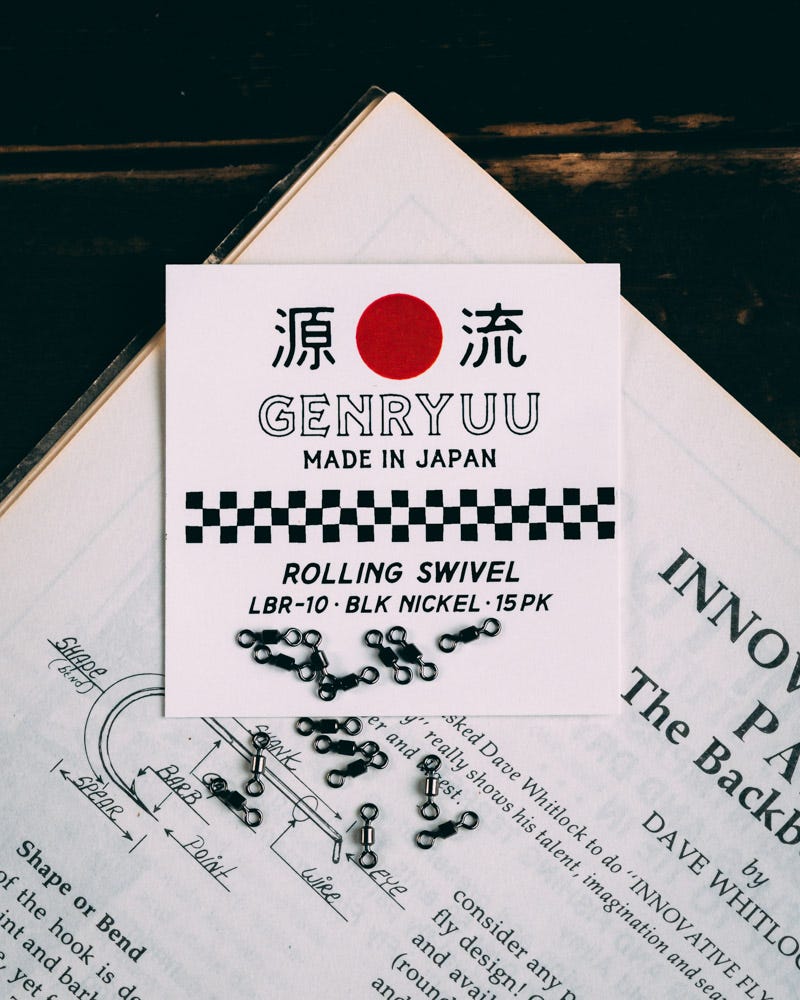 源 流
GENRYUU
MADE IN JAPAN
ROLLING SWIVEL
LBR-10 · BLK NICKEL · 15PK
SHAPE
(BEND)
SHANK
BARB
SPEAR
POINT
WIRE
EYE
INNOV
PA
The Backb
by
DAVE WHITLOC
sked Dave Whitlock to do "INNOVATIVE FLY
y" really shows his talent, imagination and sea
er and
est.
Shape or Bend
of the hook is de
int and barb
, yet f
consider any p
fly design!
and avail
(roun
and